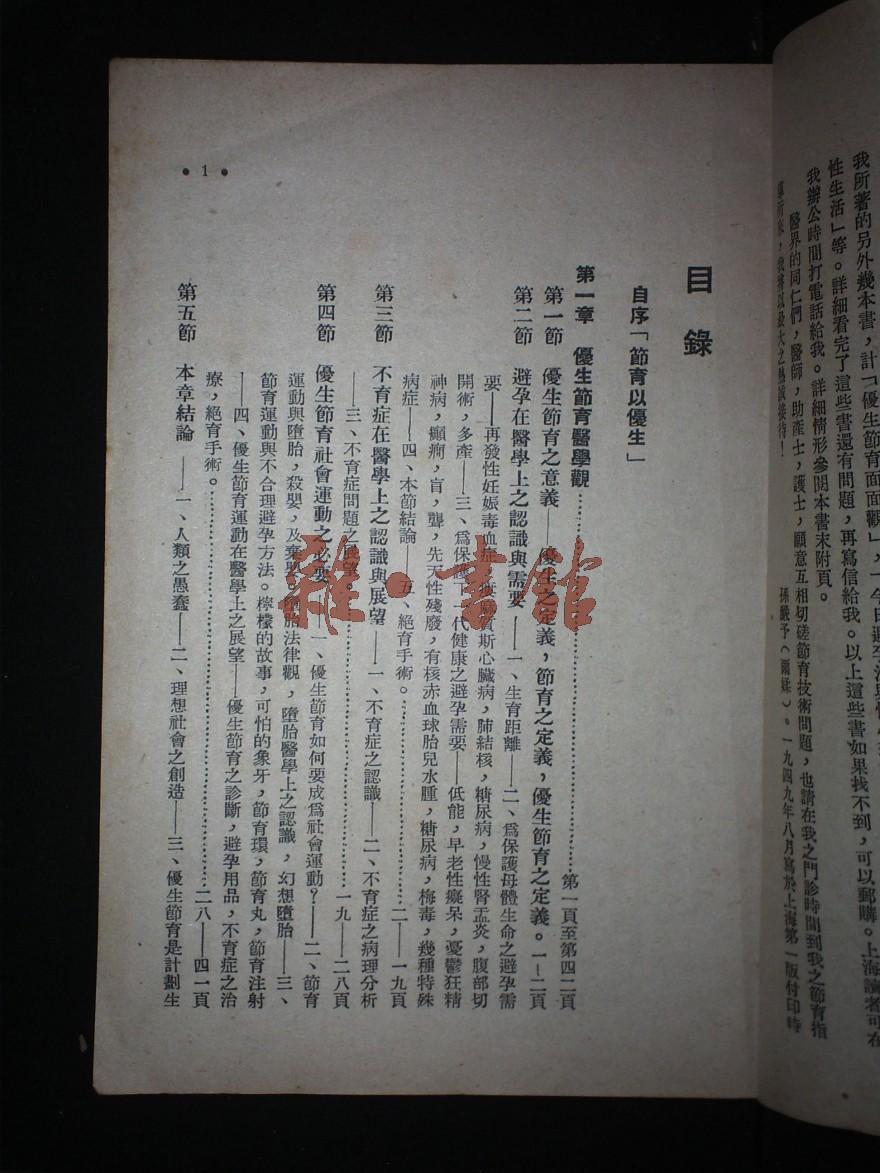 我所著的另外幾本書,計「優生節育面面觀」,
性生活」等。詳細看完了這些書還有問題,再寫信給我。以上這些書如果找不到,可以郵購。上海讀者可在
我辦公時間打電話給我。詳細情形參閱本書末附頁。
醫界的同仁們,醫師,助產士,護士,願意互相切磋節育技術問題,也請在我之門診時間到我之節育指
一九四九年八月寫於上海第一版付印時
目錄
自序「節育以優生」
第一章 優生節育醫學觀…………第一頁至第四二頁
第一節 優生節育之意義——優生之定義,節育之定義,優生節育之定義。一—二頁
第二節 避孕在醫學上之認識與需要——一、生育距離——二、爲保護母體生命之避孕需
要——再發性妊娠毒血症,僂麻質斯心臟病,肺結核,糖尿病,慢性腎盂炎,腹部切
開術,多產——三、爲保護下一代健康之避孕需要——低能,早老性癡呆,憂鬱狂精
神病,癲癇,盲,聾,先天性殘廢,有核赤血球胎兒水腫,糖尿病,梅毒,幾種特殊
病症——四、本節結論——五、絕育手術。…………二—一九頁
第三節 不育症在醫學上之認識與展望——一、不育症之認識——二、不育症之病理分析
——三、不育症問題之展望。…………一九—二八頁
第四節 優生節育社會運動之必要——一、優生節育如何要成爲社會運動?——二、節育
運動與墮胎,殺嬰,及棄嬰。墮胎法律觀,墮胎醫學上之認識,幻想墮胎——三、
節育運動與不合理避孕方法。檸檬的故事,可怕的象牙,節育環,節育丸,節育注射
——四、優生節育運動在醫學上之展望——優生節育之診斷,避孕用品,不育症之治
療,絕育手術。…………二八—四一頁
第五節 本章結論——一、人類之愚蠢——二、理想社會之創造——三、優生節育是計劃生
• 1 •
雜·書館